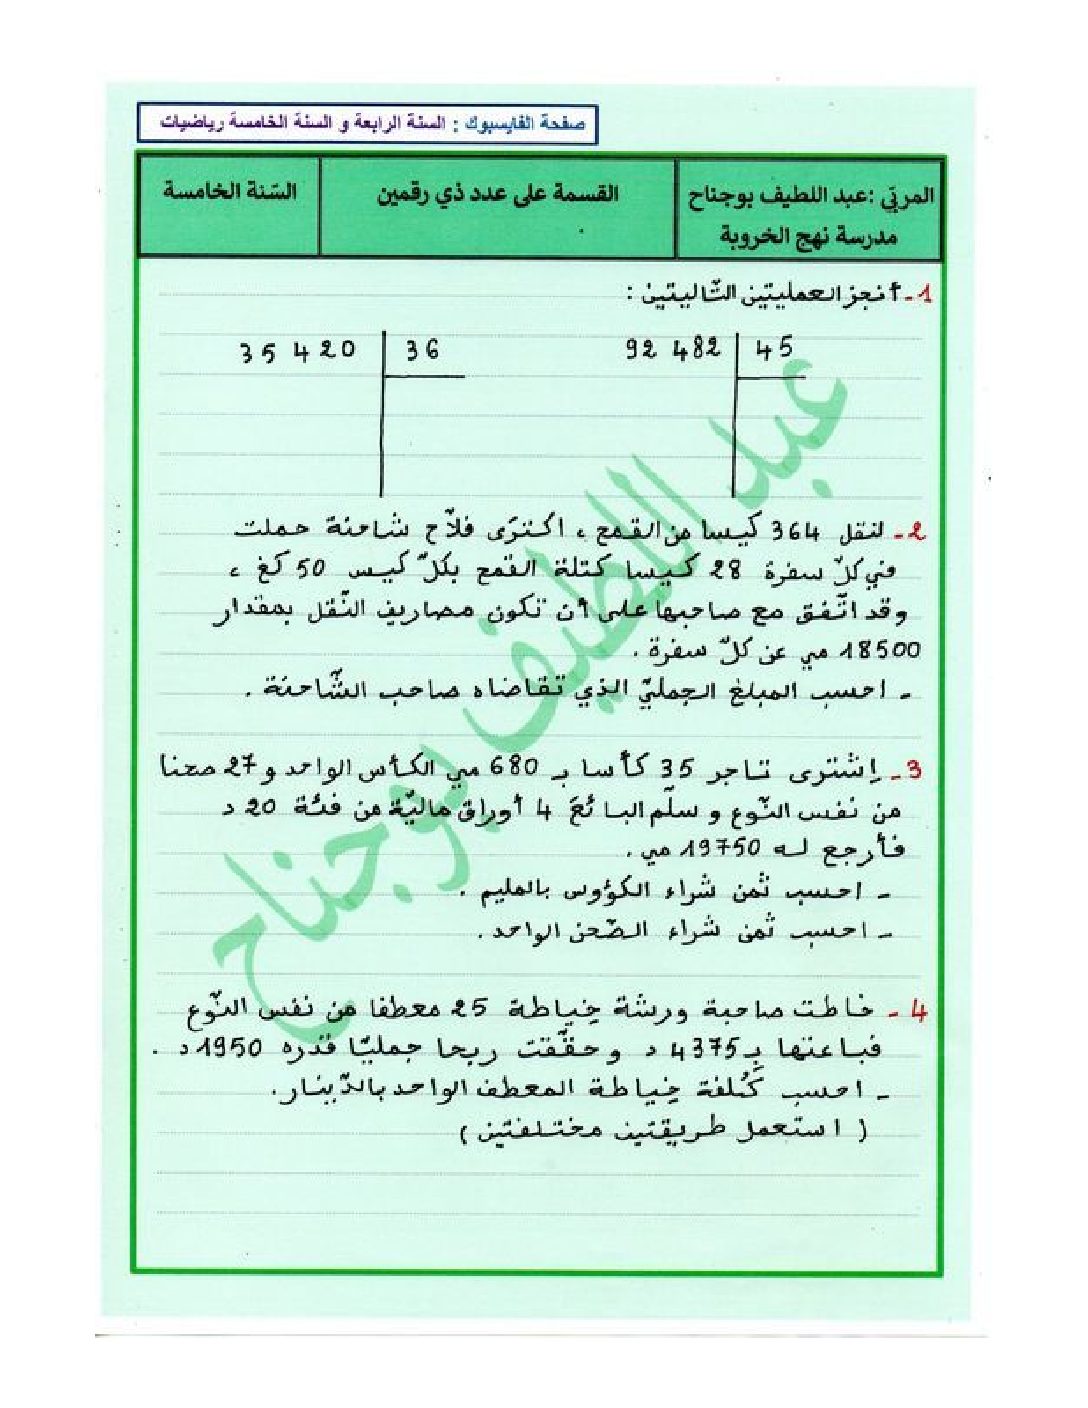 صفحة الفايسبوك : السنة الرابعة و السنة الخامسة رياضيات
المربّي :عبد اللطيف بوجناح
مدرسة نهج الخروبة
القسمة على عدد ذي رقمين
السّنة الخامسة
1- أنجز العمليتين التّاليتين :
92 482 45
35 420 36
2- لنقل 364 كيسا من القمح ، اكترى فلاّح شاحنة حملت
في كلّ سفرة 28 كيسا كتلة القمح بكلّ كيس 50 كغ ،
وقد اتّفق مع صاحبها على أن تكون مصاريف النّقل بمقدار
18500 مي عن كلّ سفرة .
- احسب المبلغ الجمليّ الذي تقاضاه صاحب الشّاحنة .
3- اِشترى تاجر 35 كأسا بـ 680 مي الكأس الواحد و 27 صحنا
من نفس النّوع و سلّم البائعَ 4 أوراق ماليّة من فئة 20 د
فأرجع له 19750 مي .
- احسب ثمن شراء الكؤوس بالمليم .
- احسب ثمن شراء الصّحن الواحد .
4- خاطت صاحبة ورشة خياطة 25 معطفا من نفس النّوع
فباعتها بـ 4375 د وحقّقت ربحا جمليّا قدره 1950 د .
- احسب كُلفة خياطة المعطف الواحد بالدّينار .
( استعمل طريقتين مختلفتين )
عبد اللطيف بوجناح